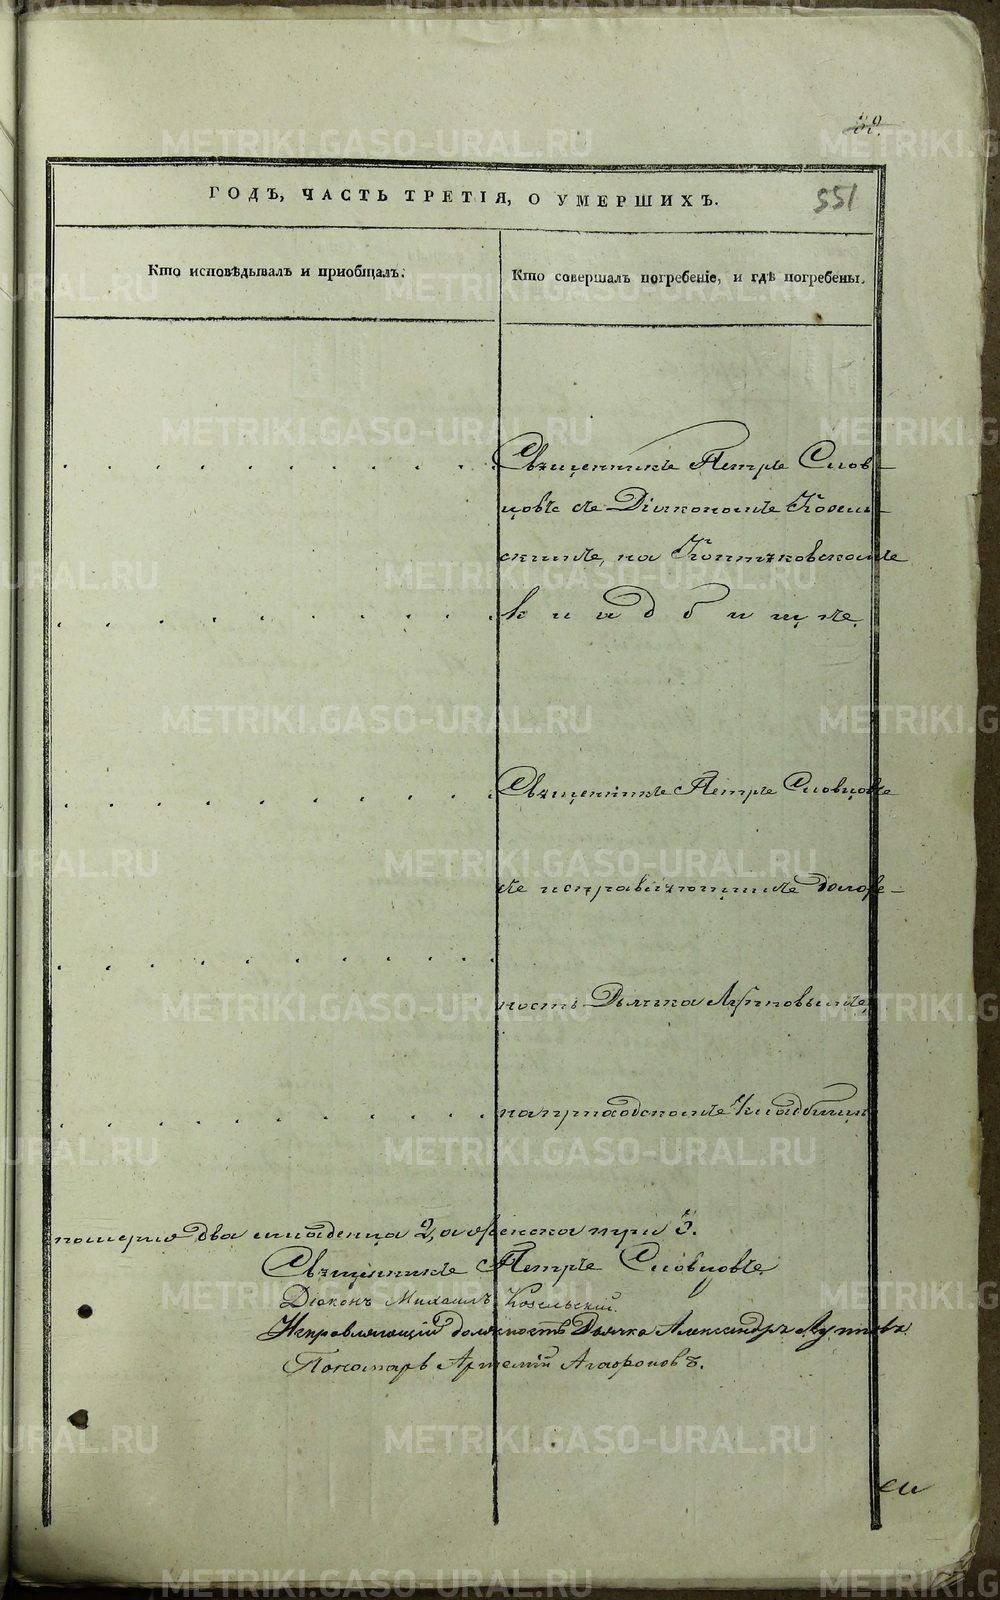 59.
ГОДЪ, ЧАСТЬ ТРЕТІЯ, О УМЕРШИХЪ.
551
Кто исповѣдывалъ и приобщалъ.
Кто совершалъ погребеніе, и гдѣ погребены.
Священникъ Петръ Слов-
цовъ съ Діакономъ Козель-
скимъ, на Коптяковскомъ
кладбищѣ.
Священникъ Петръ Словцовъ
съ исправляющимъ долж-
ность Дьячка Луповымъ,
на градскомъ кладбищѣ
померло два младенца 2, а женска три 3.
Священникъ Петръ Словцовъ.
Діаконъ Михаилъ Козельскій.
Исправляющій должность Дьячка Александръ Луповъ
Пономарь Артемій Агафоновъ.
METRIKI.GASO-URAL.RU